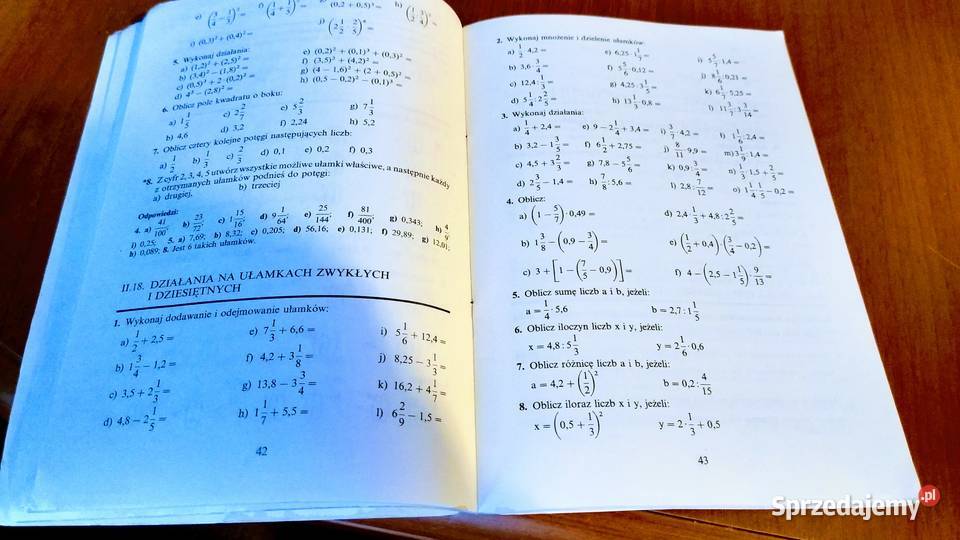 e) (3/4 − 1/3)² =
f) (1/4 + 1/3)² =
g) (0,2 + 0,5)³ =
h) (1/2 · 3/4)² =
i) (0,3)² + (0,4)² =
j) (2 1/2 · 2/5)⁴ =
5. Wykonaj działania:
a) (1,2)² + (2,5)² =
b) (3,4)² − (1,8)² =
c) (0,5)³ + 2 · (0,2)² =
d) 4³ − (2,8)² =
e) (0,2)² + (0,1)³ + (0,3)² =
f) (3,5)² + (4,2)² =
g) (4 − 1,6)² + (2 + 0,5)² =
h) (0,5 − 0,2)² − (0,1)³ =
6. Oblicz pole kwadratu o boku:
a) 1 1/5
b) 4,6
c) 2 2/7
d) 3,2
e) 5 2/3
f) 2,24
g) 7 1/3
h) 5,2
7. Oblicz cztery kolejne potęgi następujących liczb:
a) 1/2 b) 1/3 c) 2/3 d) 0,1 e) 0,2 f) 0,3
*8. Z cyfr 2, 3, 4, 5 utwórz wszystkie możliwe ułamki właściwe, a następnie każdy
z otrzymanych ułamków podnieś do potęgi:
a) drugiej, b) trzeciej
Odpowiedzi:
4. a) 41/100; b) 23/72; c) 1 15/16; d) 9 1/64; e) 25/144; f) 81/400; g) 0,343; h) 4/9;
i) 0,25; 5. a) 7,69; b) 8,32; c) 0,205; d) 56,16; e) 0,131; f) 29,89; g) 12,01;
h) 0,089; 8. Jest 6 takich ułamków.
II.18. DZIAŁANIA NA UŁAMKACH ZWYKŁYCH
I DZIESIĘTNYCH
1. Wykonaj dodawanie i odejmowanie ułamków:
a) 1/2 + 2,5 =
b) 1 3/4 − 1,2 =
c) 3,5 + 2 1/3 =
d) 4,8 − 2 1/5 =
e) 7 1/3 + 6,6 =
f) 4,2 + 3 1/8 =
g) 13,8 − 3 3/4 =
h) 1 1/7 + 5,5 =
i) 5 1/6 + 12,4 =
j) 8,25 − 3 1/3 =
k) 16,2 + 4 1/7 =
l) 6 2/9 − 1,5 =
42
2. Wykonaj mnożenie i dzielenie ułamków:
a) 1/2 · 4,2 =
b) 3,6 · 3/4 =
c) 12,4 : 1/3 =
d) 5 1/4 : 2 2/5 =
e) 6,25 · 1 1/7 =
f) 5 5/6 : 0,12 =
g) 4,25 : 3 1/5 =
h) 13 1/7 · 0,8 =
3. Wykonaj działania:
a) 1/4 + 2,4 =
b) 3,2 − 1 3/5 =
c) 4,5 + 3 2/3 =
d) 2 3/5 − 1,4 =
e) 9 − 2 1/4 + 3,4 =
f) 6 1/2 + 2,75 =
g) 7,8 − 5 5/6 =
h) 7/8 : 5,6 =
i) 3/7 · 4,2 =
j) 8/11 · 9,9 =
k) 0,9 · 3/4 =
l) 2,8 : 7/12 =
ł) 1 1/6 : 2,4 =
m) 3 1/9 · 1,4 =
n) 7/3 · 1,5 + 2/5 =
o) 1 1/4 · 1/5 − 0,2 =
4. Oblicz:
a) (1 − 5/7) · 0,49 =
b) 1 3/8 − (0,9 − 3/4) =
c) 3 + [1 − (7/5 − 0,9)] =
d) 2,4 · 1/3 + 4,8 : 2 2/5 =
e) (1/2 + 0,4) · (3/4 − 0,2) =
f) 4 − (2,5 − 1 1/5) · 9/13 =
5. Oblicz sumę liczb a i b, jeżeli:
a = 1/4 · 5,6 b = 2,7 : 1 1/5
6. Oblicz iloczyn liczb x i y, jeżeli:
x = 4,8 : 5 1/3 y = 2 1/6 · 0,6
7. Oblicz różnicę liczb a i b, jeżeli:
a = 4,2 + (1/2)² b = 0,2 : 4/15
8. Oblicz iloraz liczb x i y, jeżeli:
x = (0,5 + 1/3)² y = 2 · 1/3 + 0,5
43
Sprzedajemy.pl